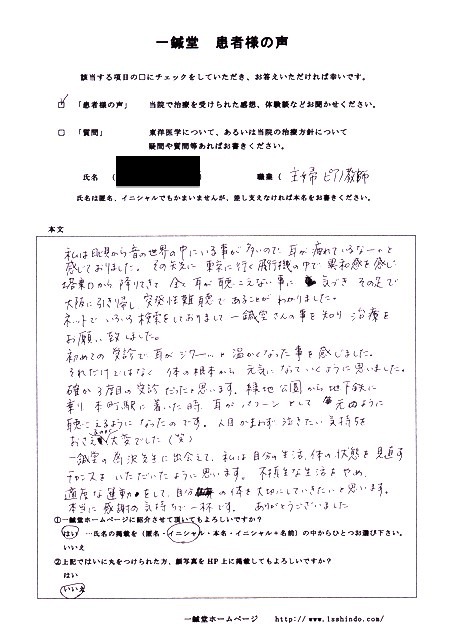 一鍼堂 患者様の声
該当する項目の□にチェックをしていただき、お答えいただければ幸いです。
☑ 「患者様の声」 当院で治療を受けられた感想、体験談などお聞かせください。
□ 「質問」 東洋医学について、あるいは当院の治療方針について
疑問や質問等あればお書きください。
氏名 ( 職業 ( 主婦 ピアノ教師
氏名は匿名、イニシャルでもかまいませんが、差し支えなければ本名をお書きください。
本文
私は日頃から音の世界の中にいる事が多いので 耳が疲れているなーっと
感じておりました。 その矢先に 東京に行く飛行機の中で 異和感を感じ
搭乗口から降りてきて 全く耳が聴こえない事に 気づき その足で
大阪に引き帰し 突発性難聴であることが わかりました。
ネットで いろいろ検索をしておりまして 一鍼堂さんの事を知り 治療を
お願い致しました。
初めての受診で 耳が ジワーッと 温かくなった事を感じました。
それだけではなく 体の根本から 元気になっていくように思いました。
確か 3度目の受診だったと思います。 緑地公園から地下鉄に
乗り 本町駅に着いた時、 耳が パカーンとして 元のように
聴こえるようになったのです。 人目かまわず 泣きたい気持ちを
おさえるのが大変でした (笑)
一鍼堂の 先生に出会えて、 私は 自分の生活、体の状態を見直す
チャンスを いただいたように思います。 不摂生な生活をやめ、
適度な運動をして、自分の体を大切にしていきたいと思います。
本当に 感謝の気持ちで一杯です。 ありがとうございました
①一鍼堂ホームページに紹介させて頂いてもよろしいですか？
はい …氏名の掲載を（匿名・イニシャル・本名・イニシャル＋名前）の中からひとつお選び下さい。
いいえ
②上記ではいに丸をつけられた方、顔写真をHP上に掲載してもよろしいですか？
はい
いいえ
一鍼堂ホームページ http://www.1sshindo.com/